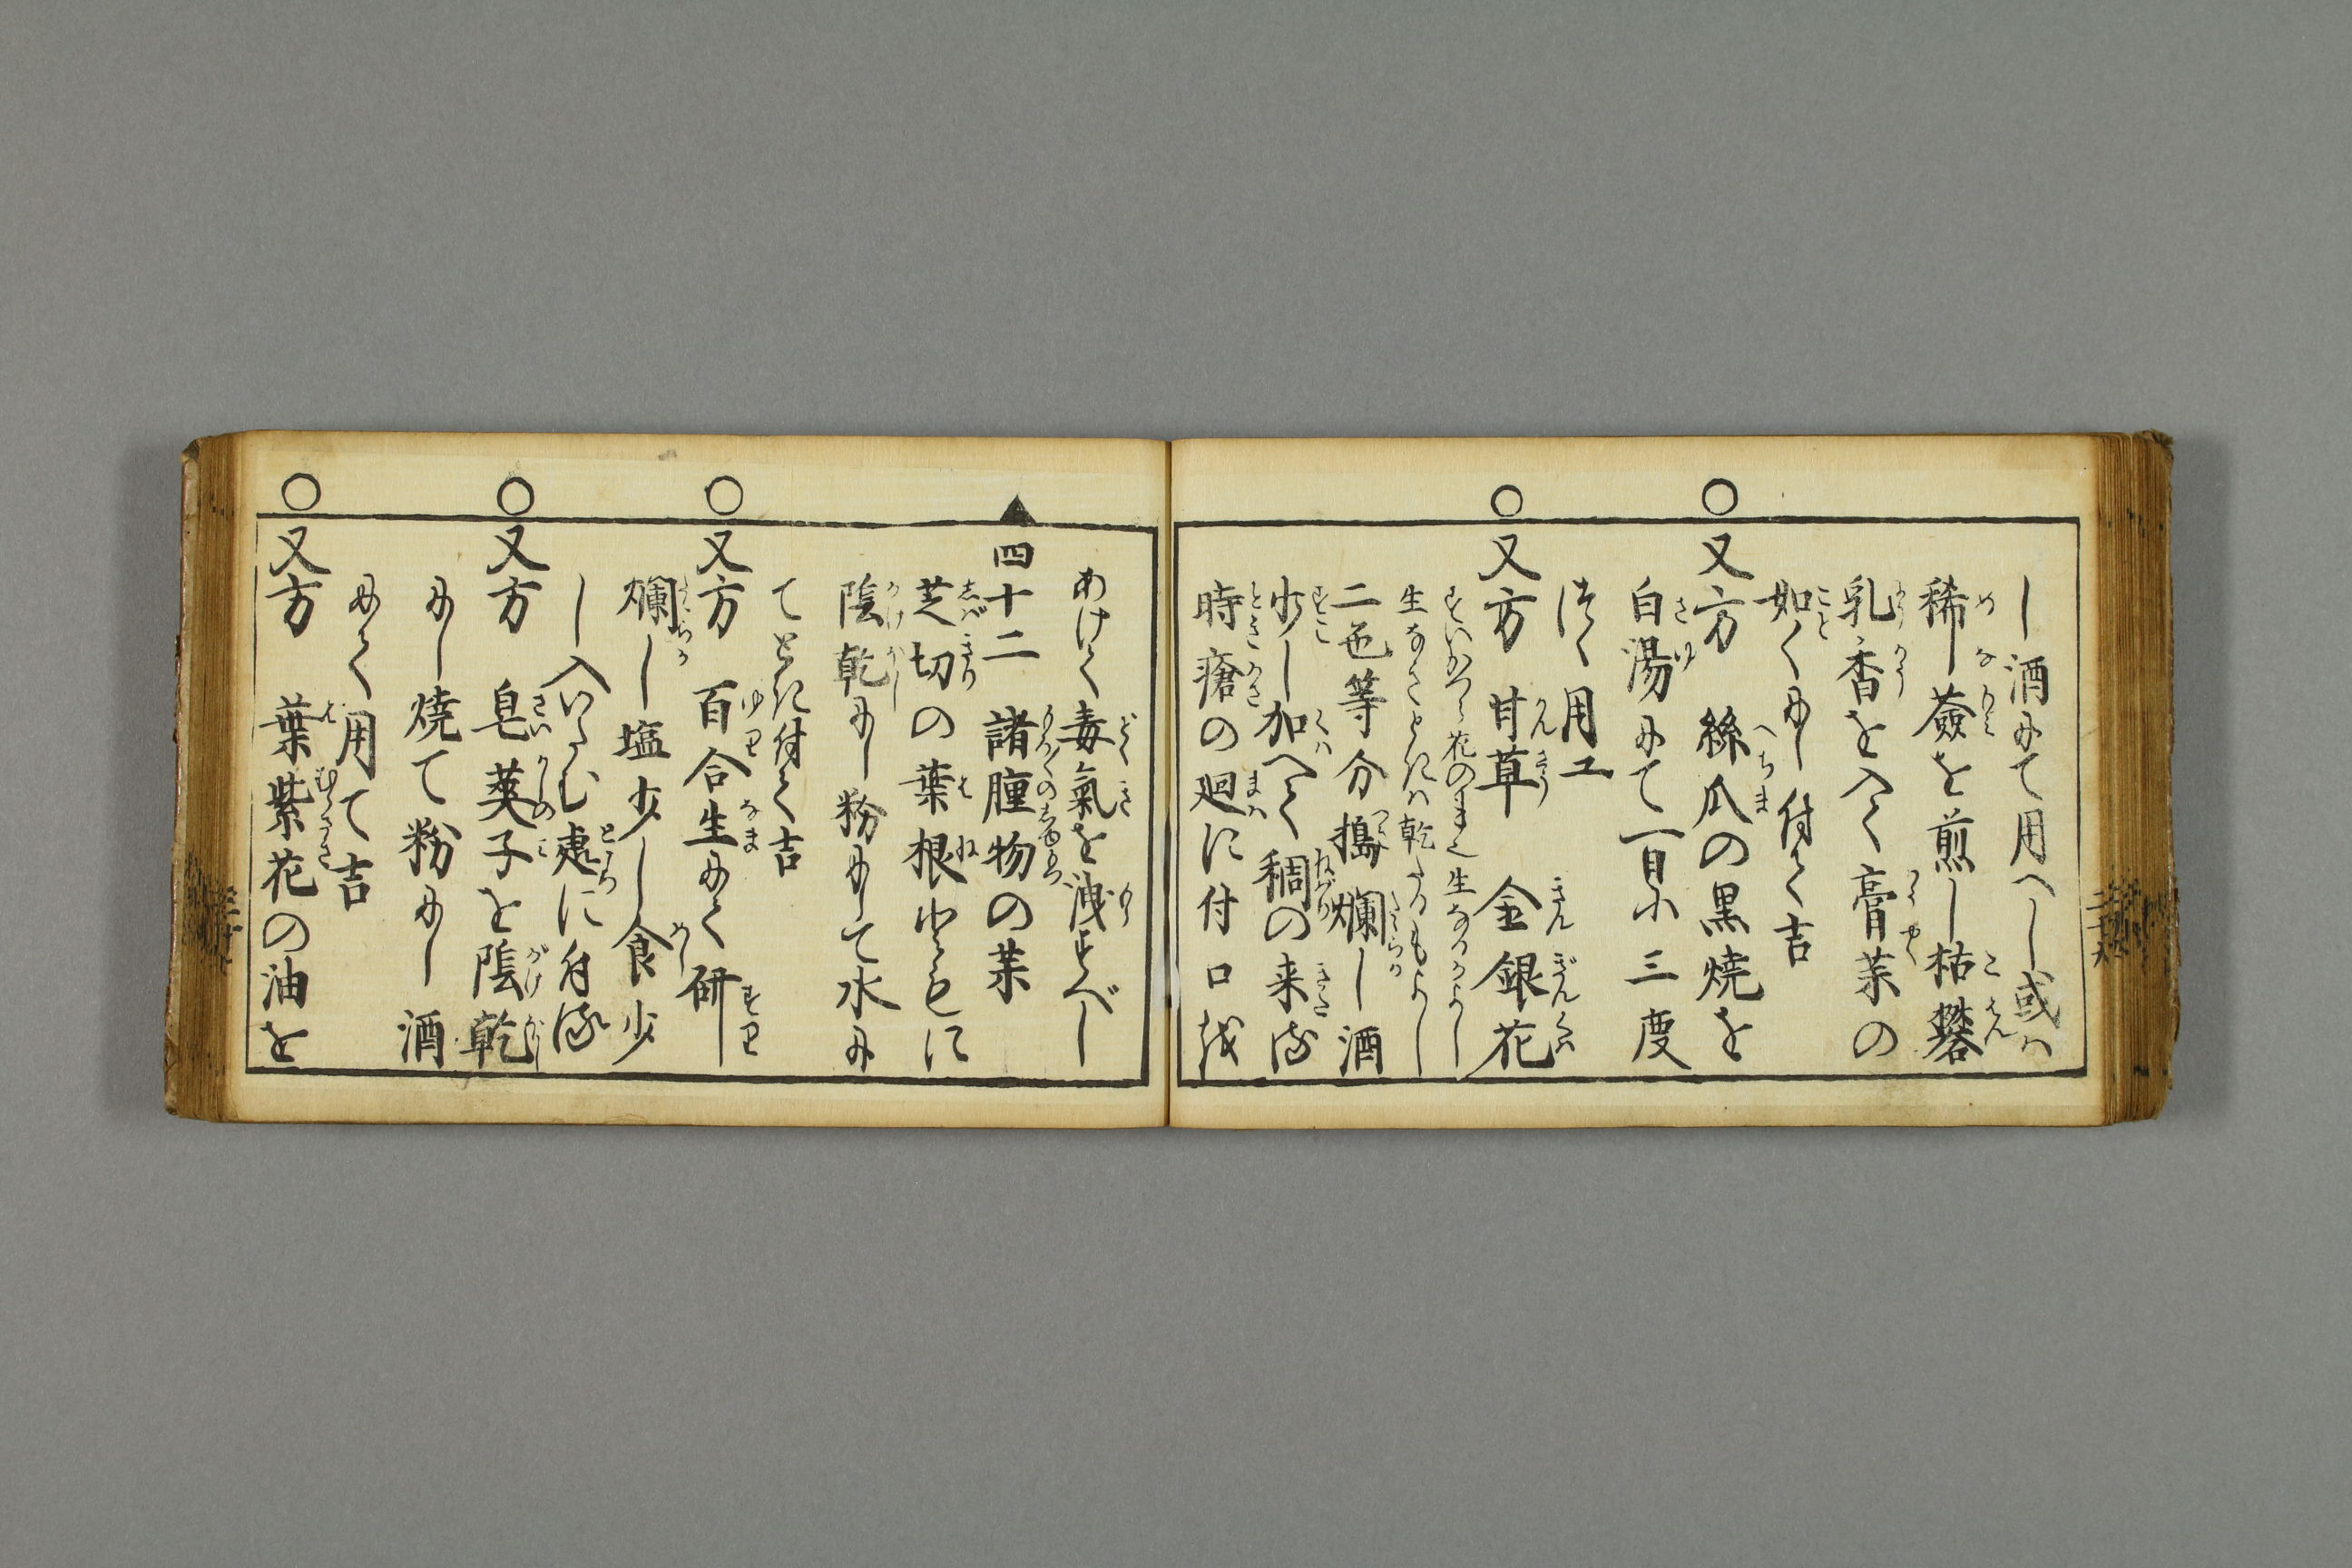 し酒にて用へし或ハ
稀し薟を煎し枯礬
乳香を入て膏薬の
如くにし付て吉
○又方 絲瓜の黒焼を
白湯にて一日ニ三度
つく用ユ
○又方 甘草 金銀花
すいかつら花のまた生なるかよし
生なきときハ乾たるもよし
二色等分搗爛し酒
少し加へて稠の来る
時瘡の廻に付口を
あけて毒氣を洩すべし
▲四十二 諸腫物の薬
芝切の葉根ともに
陰乾にし粉にして水に
てとき付て吉
○又方 百合生にて研
爛し塩少し食少
し入いたむ處に付る
○又方 皂莢子を陰乾
にし焼て粉にし酒
にて用て吉
○又方 葉紫花の油を